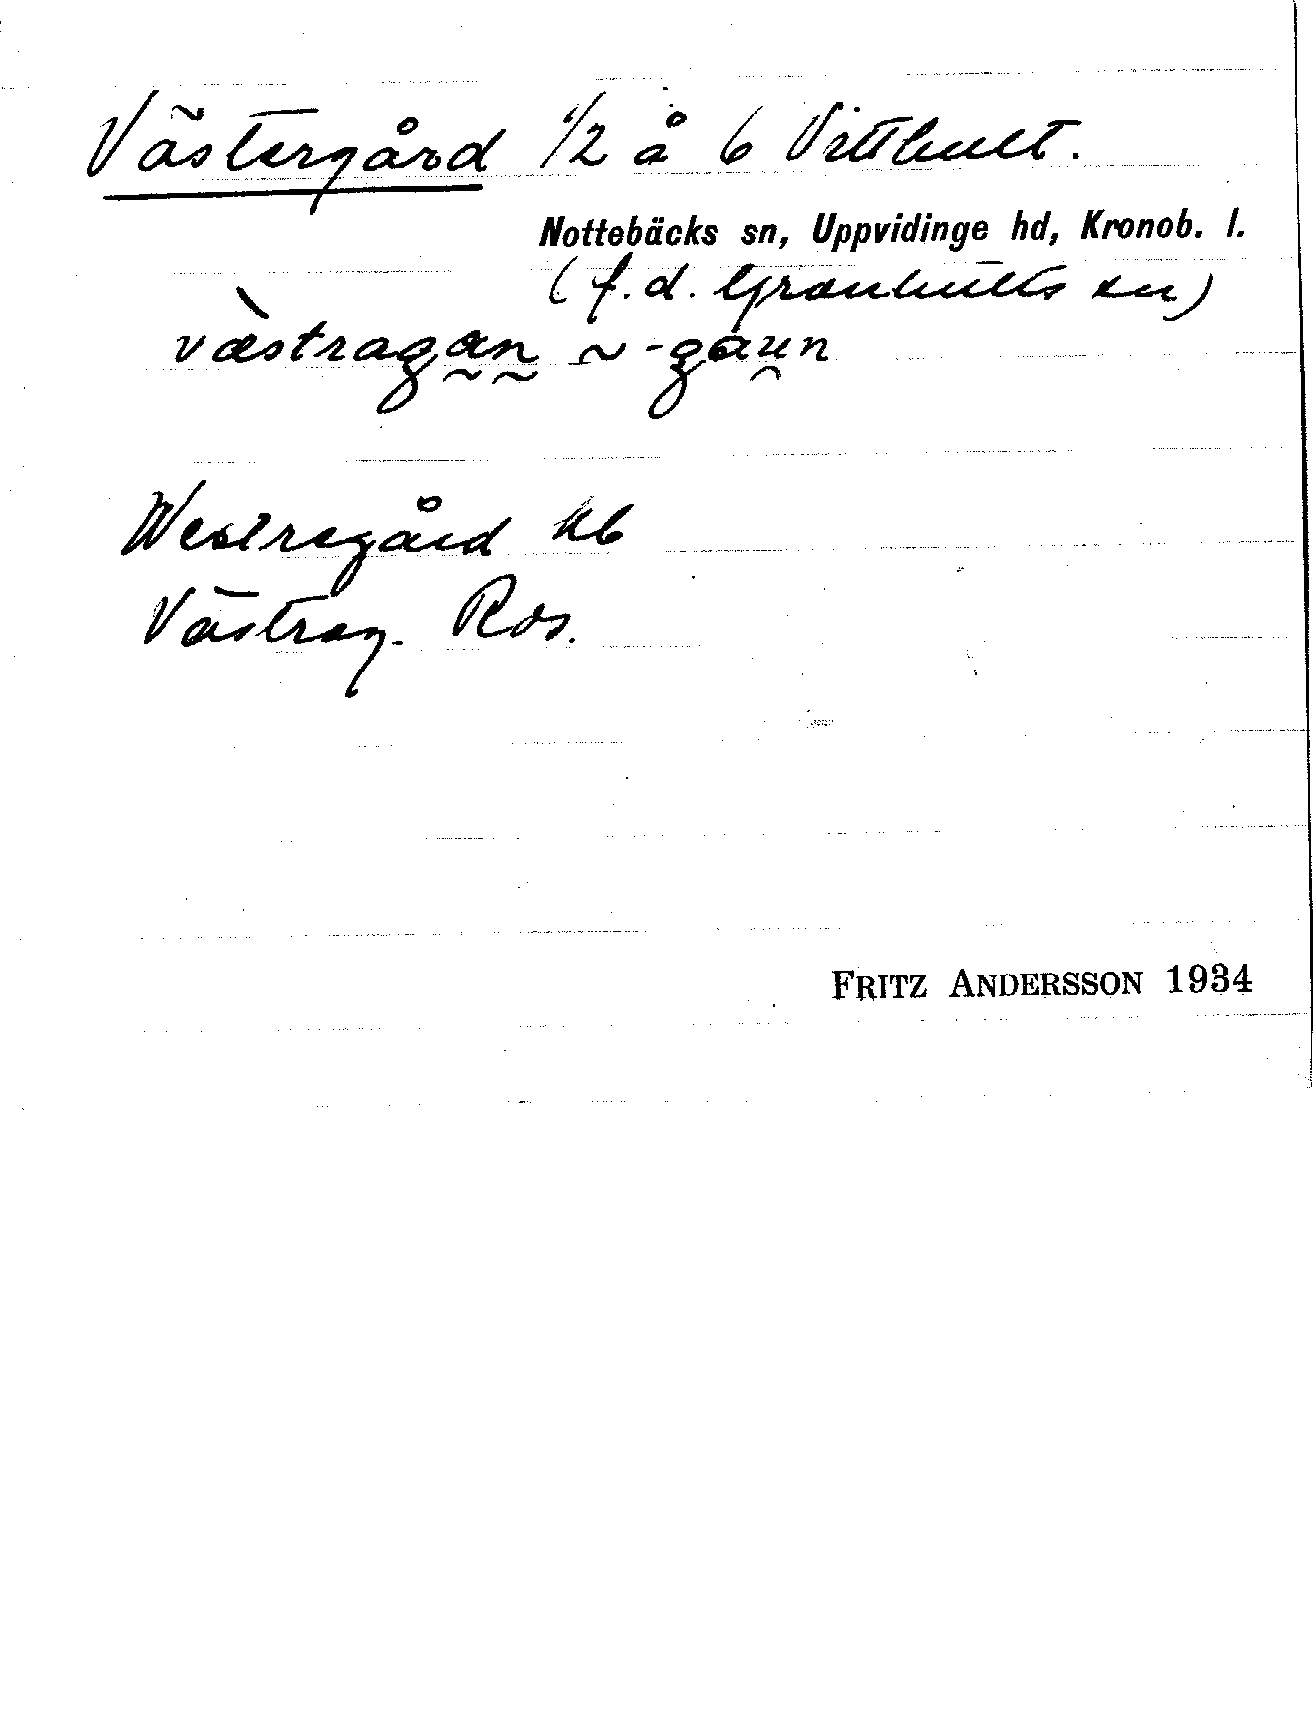 Västergård 1/2 å 6 Vitthult.
Nottebäcks sn, Uppvidinge hd, Kronob. l.
(f.d. Granhults sn)
væ̀stragan ~ -gaun
Westregård kb
Västreg. Ros.
FRITZ ANDERSSON 1934